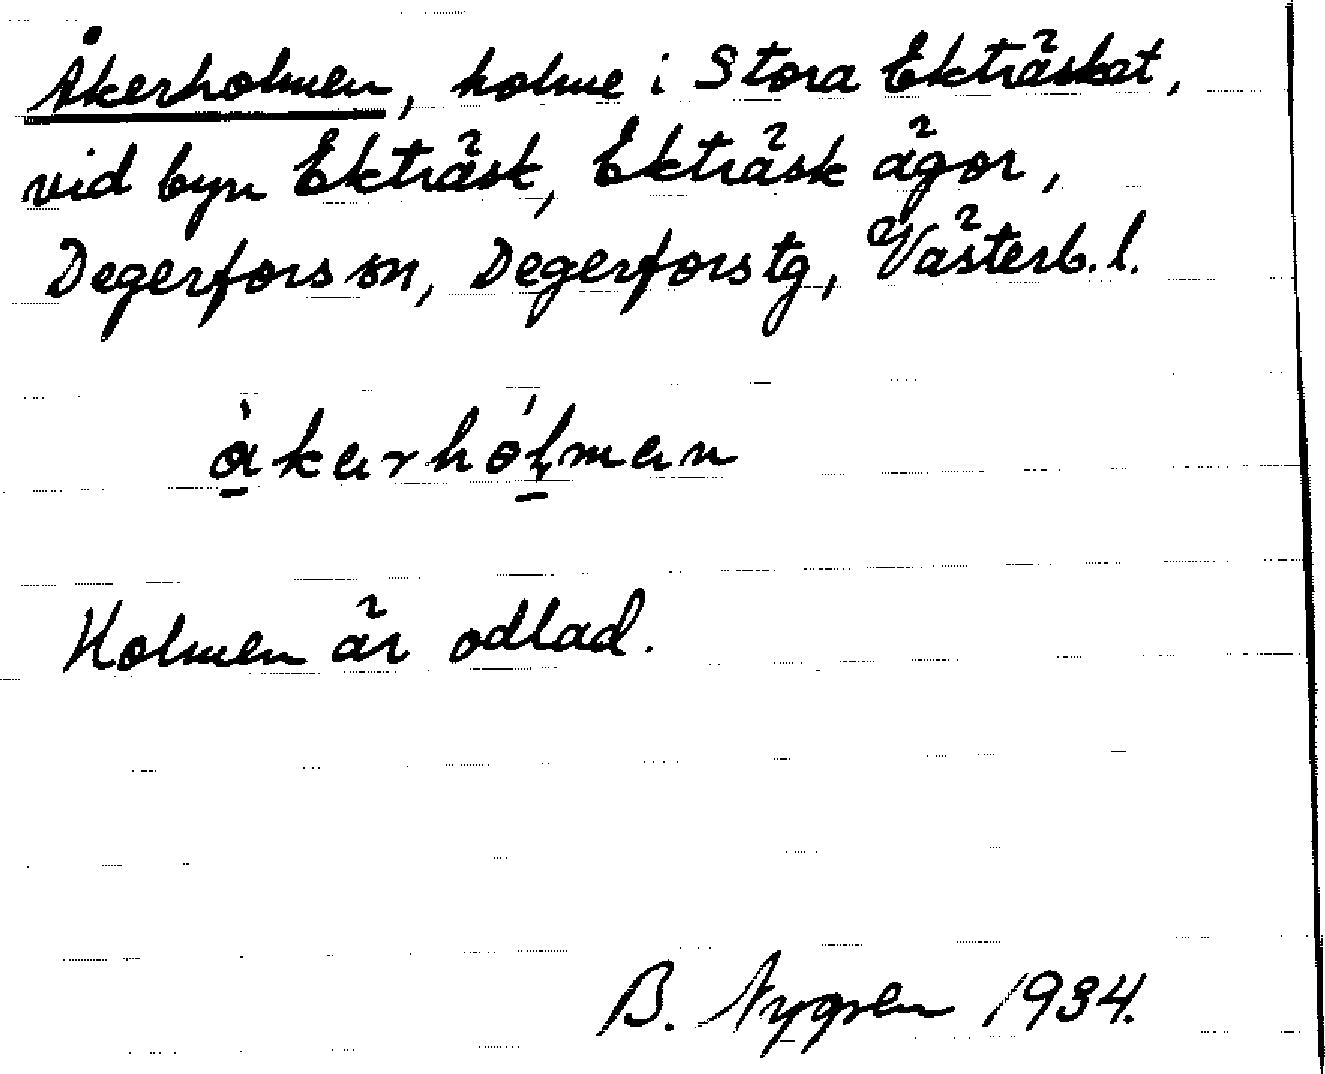 Åkerholmen, holme i Stora Ekträsket,
vid byn Ekträsk, Ekträsk ägor,
Degerfors sn, Degerfors tg, Västerb. l.
àkerhólmen
Holmen är odlad.
B. Nygren 1934.